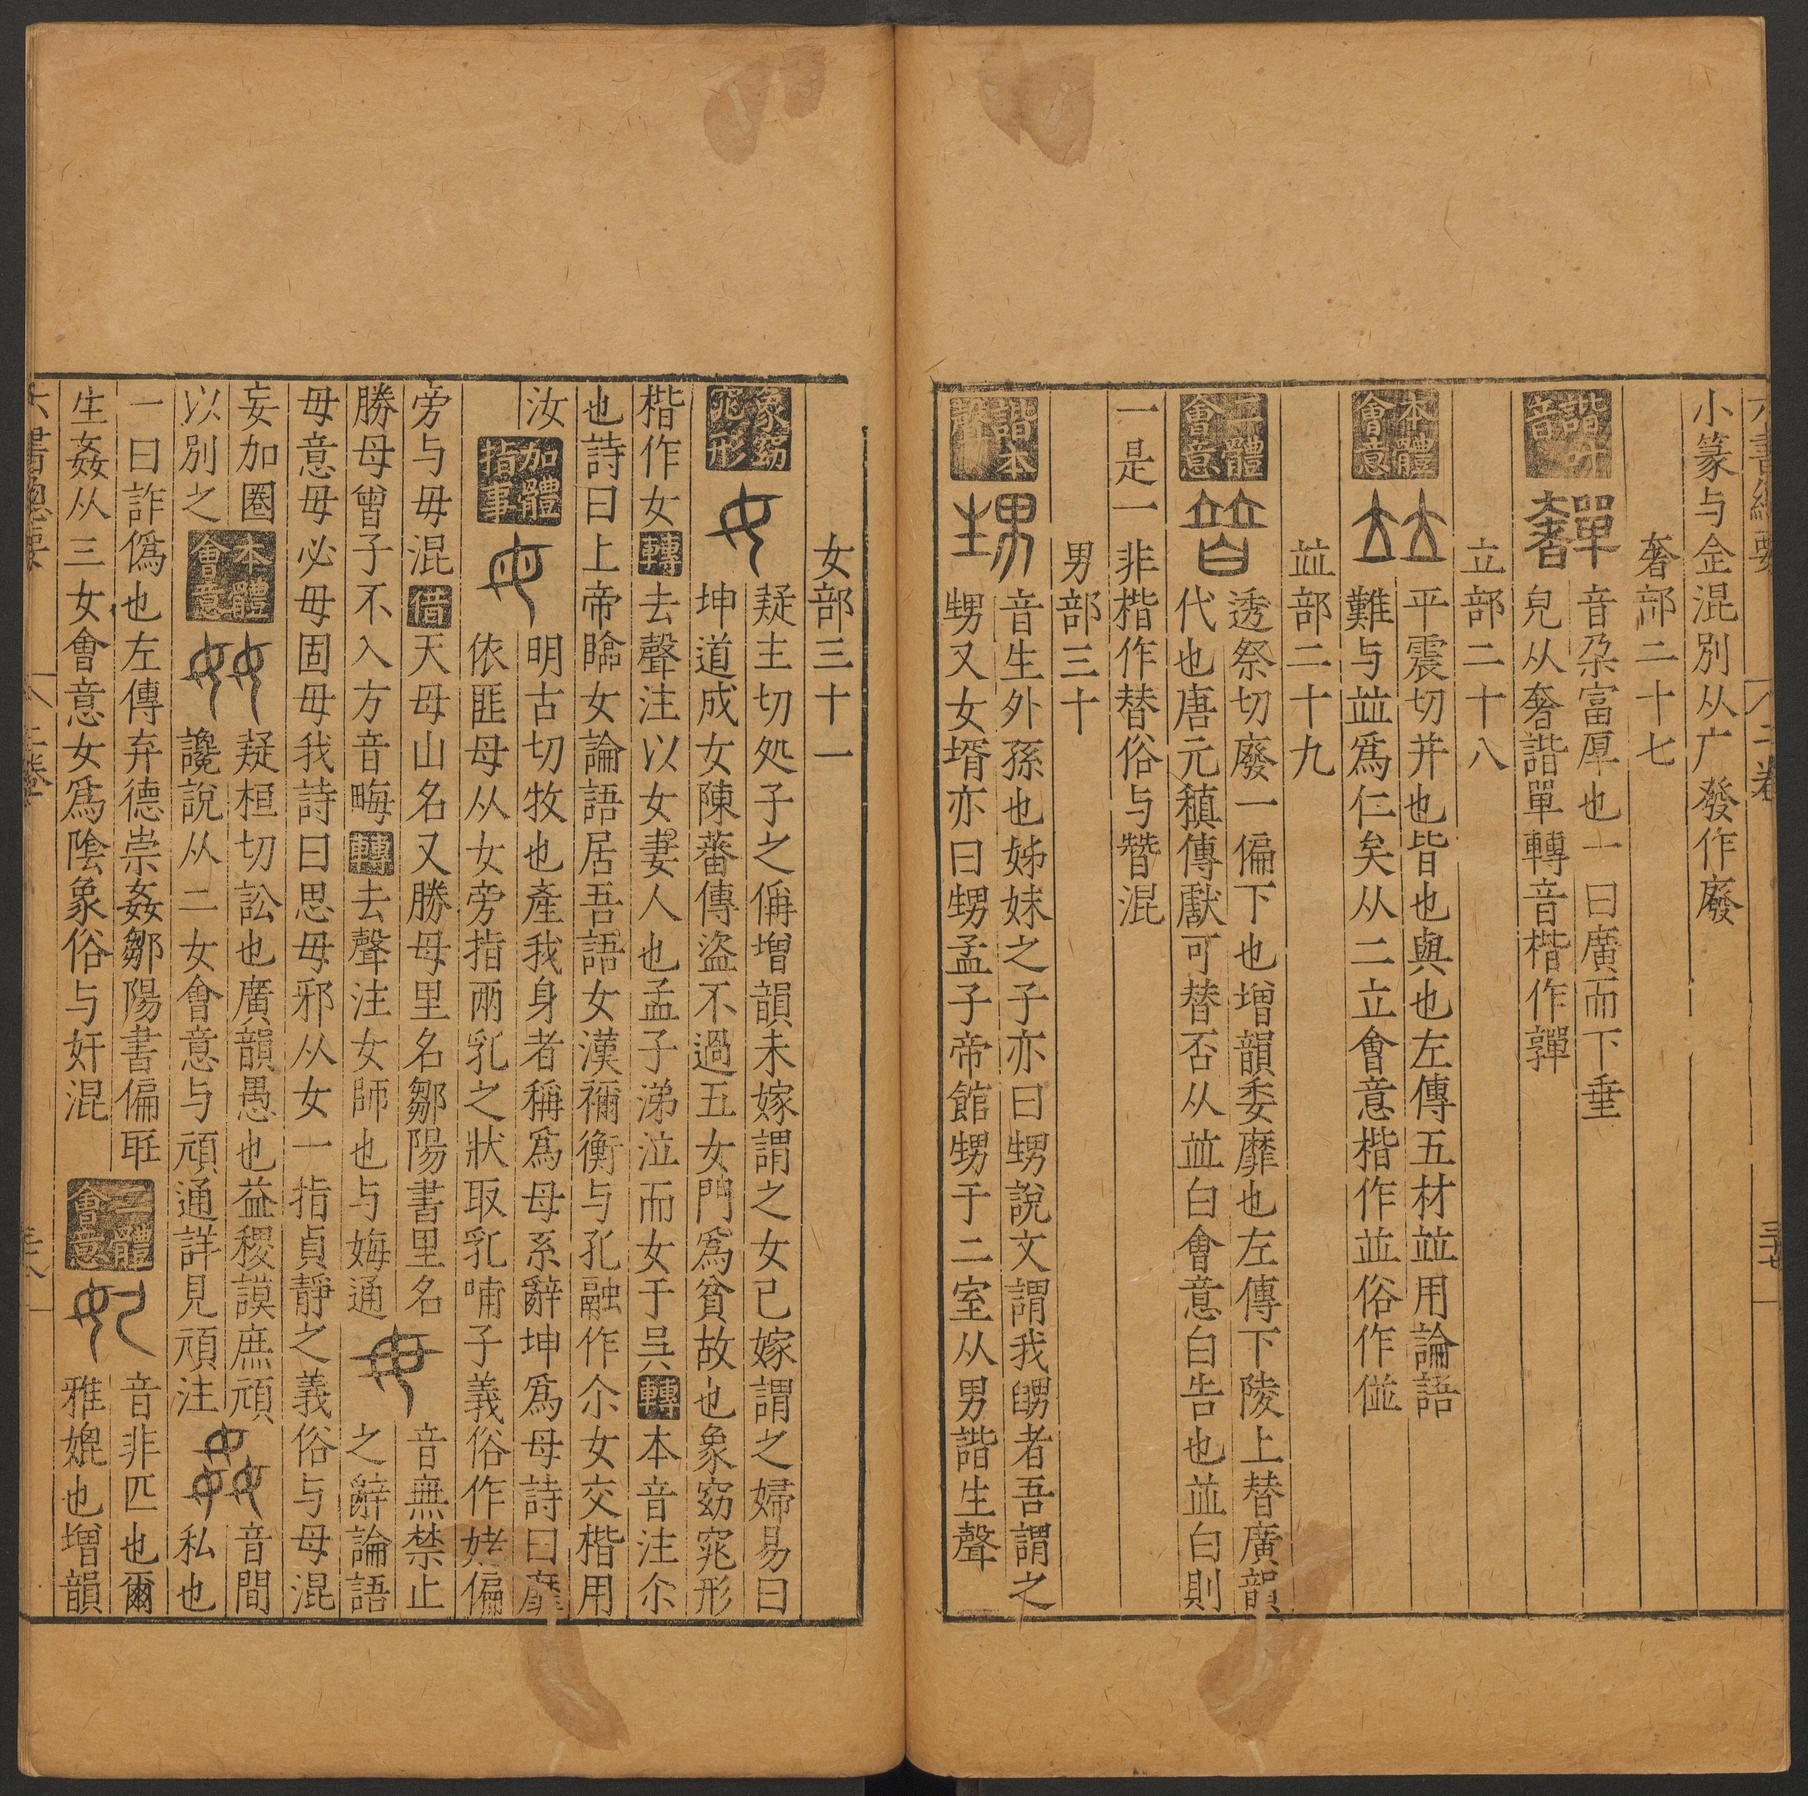 六書總要 二卷 三十七
小篆与㒰混別从广發作廢
奢部二十七
諧叶音 奲 音朶富厚也一曰廣而下垂
皃从奢諧單轉音楷作嚲
立部二十八
本體會意 竝 平震切并也皆也與也左傳五材竝用論語
難与竝爲仁矣从二立會意楷作並俗作傡
竝部二十九
二體會意 暜 透祭切廢一偏下也增韻委靡也左傳下陵上替廣韻
代也唐元稹傳獻可替否从竝白會意白告也竝白則
一是一非楷作替俗与朁混
男部三十
諧本聲 甥 音生外孫也姊妹之子亦曰甥說文謂我舅者吾謂之
甥又女壻亦曰甥孟子帝館甥于二室从男諧生聲
女部三十一
象窈窕形 女 疑主切処子之稱增韻未嫁謂之女已嫁謂之婦易曰
坤道成女陳蕃傳盜不過五女門爲貧故也象窈窕形
楷作女 轉 去聲注以女妻人也孟子涕泣而女于吳 轉 本音注尒
也詩曰上帝臨女論語居吾語女漢禰衡与孔融作尒女交楷用
汝 加體指事 母 明古切牧也產我身者稱爲母系辭坤爲母詩曰靡
依匪母从女旁指兩乳之狀取乳哺子義俗作姥偏
旁与毋混 借 天母山名又勝母里名鄒陽書里名
勝母曾子不入方音畮 轉 去聲注女師也与娒通 毋 音無禁止
之辭論語
毋意毋必毋固毋我詩曰思毋邪从女一指貞靜之義俗与母混
妄加圈
以別之 本體會意 奻 疑桓切訟也廣韻愚也益稷謨庶頑
讒說从二女會意与頑通詳見頑注 姦 音間
私也
一曰詐僞也左傳弃德崇姦鄒陽書偏聽
生姦从三女會意女爲陰象俗与奸混 二體會意 妃 音非匹也爾
雅媲也增韻
六書總要 二卷 三十八